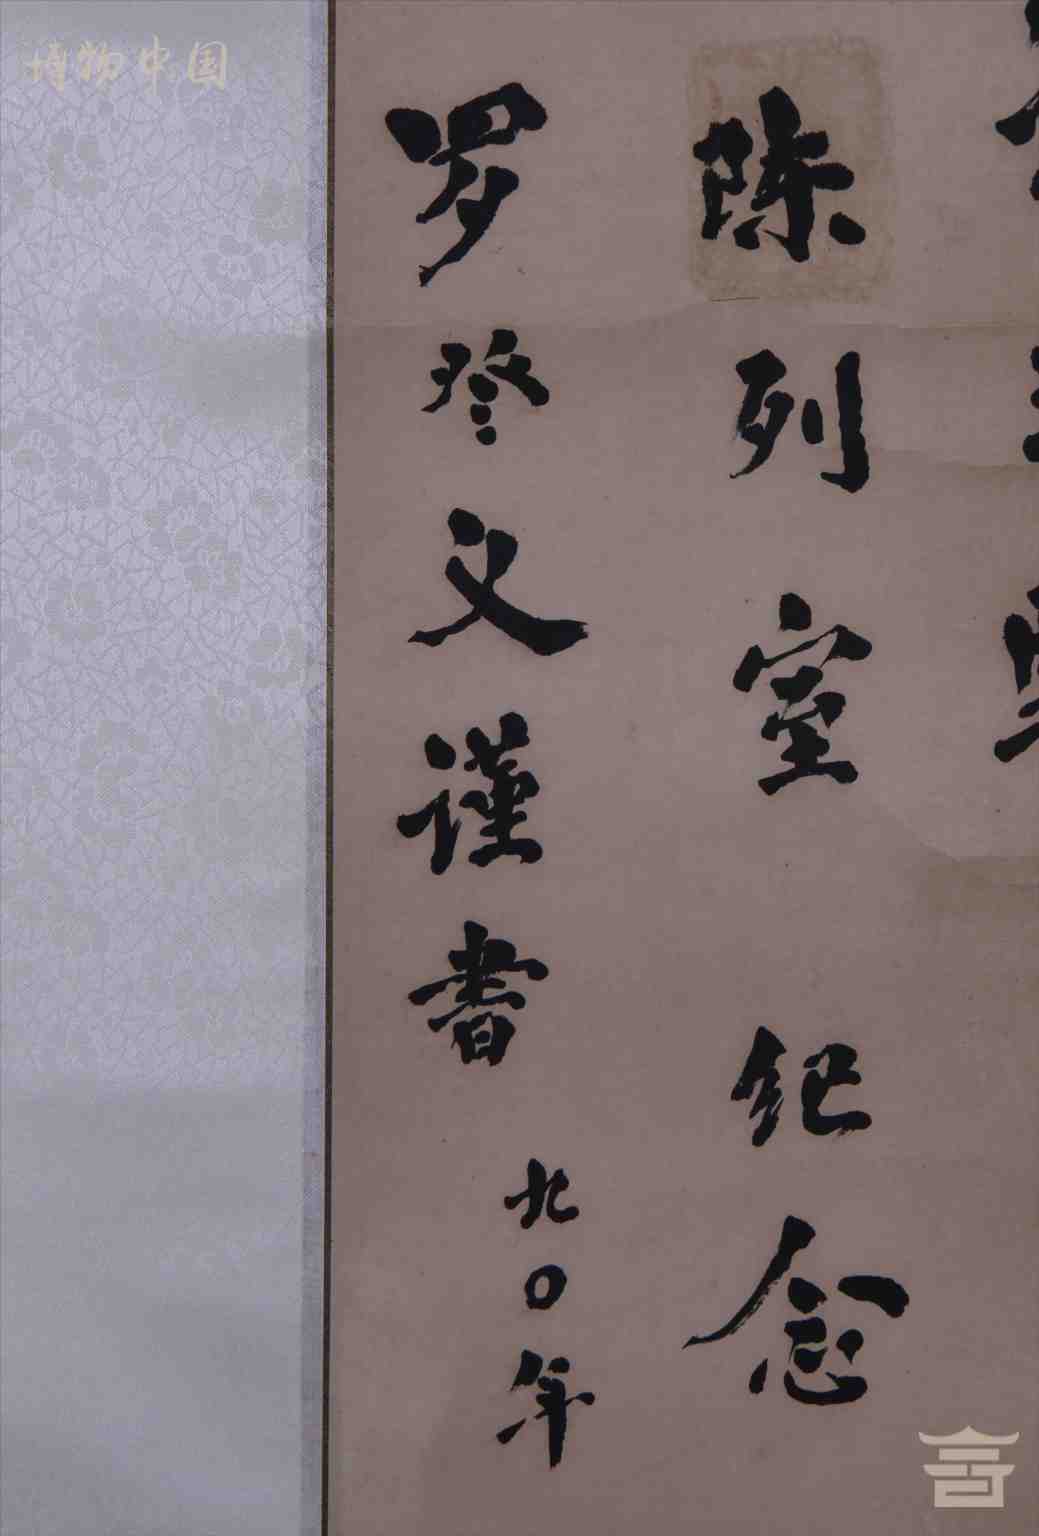 陈列室 纪念
罗义谨书 九〇年
博物中国